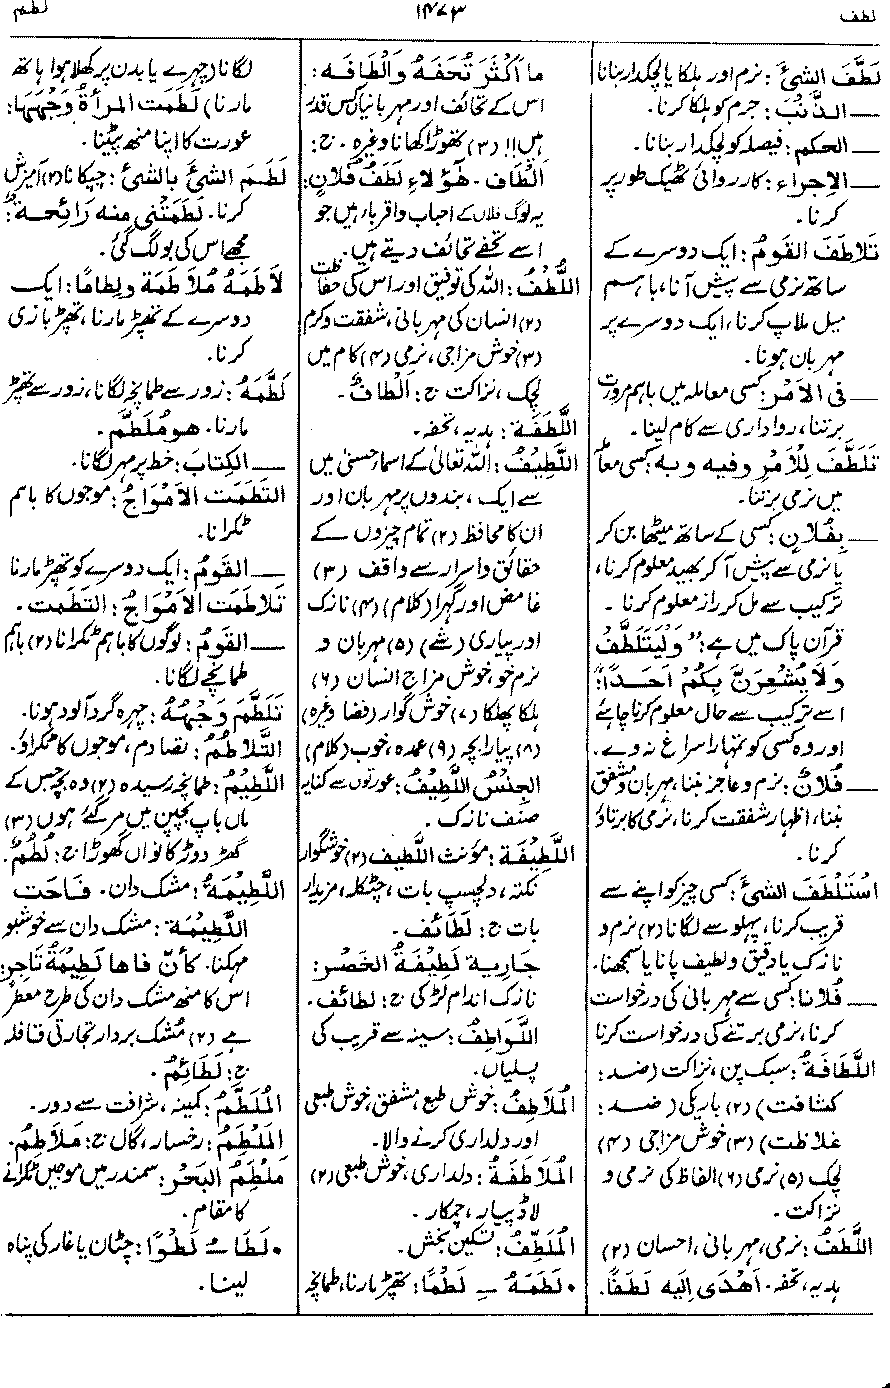 لطف
۱۴۷۳
لطم
لَطَّفَ الشیَٔ: نرم اور ہلکا یا لچکدار بنانا
ـــ الذَّنْبَ: جرم کو ہلکا کرنا.
ـــ الحکم: فیصلہ کو لچکدار بنانا.
ـــ الاِجراء: کارروائی ٹھیک طور پر
کرنا.
تَلَاطَفَ القَومُ: ایک دوسرے کے
ساتھ نرمی سے پیش آنا، باہم
میل ملاپ کرنا، ایک دوسرے پر
مہربان ہونا.
ـــ فی الاَمْرِ: کسی معاملہ میں باہم مروت
برتنا، رواداری سے کام لینا.
تَلَطَّفَ لِلْاَمْرِ وفیه وبه: کسی معاملہ
میں نرمی برتنا.
ـــ بِفُلَانٍ: کسی کے ساتھ میٹھا بن کر
یا نرمی سے پیش آ کر بھید معلوم کرنا،
ترکیب سے مل کر راز معلوم کرنا.
قرآن پاک میں ہے: "وَلْیَتَلَطَّفْ
وَلَا یُشْعِرَنَّ بِکُمْ اَحَدًا:"
اسے ترکیب سے حال معلوم کرنا چاہئے
اور وہ کسی کو تمہارا سراغ نہ دے.
ـــ فُلَانٌ: نرم و عاجز بننا، مہربان و مشفق
بننا، اظہار شفقت کرنا، نرمی کا برتاؤ
کرنا.
اسْتَلْطَفَ الشیَٔ: کسی چیز کو اپنے سے
قریب کرنا، پہلو سے لگانا (۲) نرم و
نازک یا دقیق و لطیف پانا یا سمجھنا.
ـــ فُلَانًا: کسی سے مہربانی کی درخواست
کرنا، نرمی برتنے کی درخواست کرنا
اللَّطَافَةُ: سبک پن، نزاکت (ضد:
کثافت) (۲) باریکی (ضد:
غلاظت) (۳) خوش مزاجی (۴)
لچک (۵) نرمی (۶) الفاظ کی نرمی و
نزاکت.
اللَّطَفُ: نرمی، مہربانی، احسان (۲)
ہدیہ، تحفہ. اَهْدَی اِلَیه لَطَفًا.
ما اَکْثَرَ تُحَفَهُ وَاَلْطَافَه:
اس کے تحائف اور مہربانیاں کس قدر
ہیں!! (۳) تھوڑا کھانا وغیرہ. ج:
اَلْطَاف. هٰؤُلَاءِ لَطَفُ فُلَانٍ:
یہ لوگ فلاں کے احباب و اقربا ہیں جو
اسے تحفے تحائف دیتے ہیں.
اللُّطْفُ: اللہ کی توفیق اور اس کی حفاظت
(۲) انسان کی مہربانی، شفقت و کرم
(۳) خوش مزاجی، نرمی (۴) کام میں
لچک، نزاکت ج: اَلْطَافٌ.
اللَّطَفَةُ: ہدیہ، تحفہ.
اللَّطِیْفُ: اللہ تعالیٰ کے اسماء حسنیٰ میں
سے ایک، بندوں پر مہربان اور
ان کا محافظ (۲) تمام چیزوں کے
حقائق و اسرار سے واقف (۳)
غامض اور گہرا (کلام) (۴) نازک
اور پیاری (شے) (۵) مہربان و
نرم خو، خوش مزاج انسان (۶)
ہلکا پھلکا (۷) خوش گوار (فضا وغیرہ)
(۸) پیارا بچہ (۹) عمدہ، خوب (کلام)
الجِنْسُ اللَّطِیْفُ: عورتوں سے کنایہ
صنف نازک.
اللَّطِیْفَة: مؤنث اللَّطیف (۲) خوشگوار
نکتہ، دلچسپ بات، چٹکلہ، مزیدار
بات ج: لَطَائف.
جَارِیة لَطِیْفَةُ الخَصْرِ:
نازک اندام لڑکی ج: لطائف.
اللَّوَاطِفُ: سینہ سے قریب کی
پسلیاں.
المُلَاطِفُ: خوش طبع، مشفق، خوش طبعی
اور دلداری کرنے والا.
المُلَاطَفَةُ: دلداری، خوش طبعی (۲)
لاڈ پیار، چمکار.
المُلَطِّفُ: تسکین بخش.
• لَطَمَهُ ــِ لَطْمًا: تھپڑ مارنا، طمانچہ
لگانا (چہرے یا بدن پر کھلا ہوا ہاتھ
مارنا) لَطَمَتِ المرأةُ وَجْهَهَا:
عورت کا اپنا منھ پیٹنا.
لَطَمَ الشیَٔ بالشیٔ: چپکانا (۲) آمیزش
کرنا. لَطَمَتْنِی منه رَائِحة:
مجھے اس کی بو لگ گئی.
لَاطَمَهُ مُلَاطَمَة ولِطامًا: ایک
دوسرے کے تھپڑ مارنا، تھپڑ بازی
کرنا.
لَطَّمَهُ: زور سے طمانچہ لگانا، زور سے تھپڑ
مارنا. هو مُلَطَّم.
ـــ الکِتَابَ: خط پر مہر لگانا.
التَطَمَتِ الاَمْوَاجُ: موجوں کا باہم
ٹکرانا.
ـــ القَومُ: ایک دوسرے کو تھپڑ مارنا
تَلَاطَمَتِ الاَمْوَاجُ: التَطَمت.
ـــ القَومُ: لوگوں کا باہم ٹکرانا (۲) باہم
طمانچے لگانا.
تَلَطَّمَ وَجْهُهُ: چہرہ گرد آلود ہونا.
التَّلَاطُمُ: تصادم، موجوں کا ٹکراؤ.
اللَّطِیْمُ: طمانچہ رسیدہ (۲) وہ بچہ جس کے
ماں باپ بچپن میں مر گئے ہوں (۳)
گھڑ دوڑ کا نواں گھوڑا ج: لُطُمٌ.
اللَّطِیْمَةُ: مشک دان. فَاحَت
اللَّطِیْمَة: مشک دان سے خوشبو
مہکنا. کأنّ فاها لَطِیْمَةُ تاجِرٍ:
اس کا منھ مشک دان کی طرح معطر
ہے (۲) مُشک بردار تجارتی قافلہ
ج: لَطَائِمُ.
المُلَطَّمُ: کمینہ، شرافت سے دور.
المَلْطِمُ: رخسار، گال ج: مَلَاطِمُ.
مَلْطِمُ البَحْرِ: سمندر میں موجیں ٹکرانے
کا مقام.
• لَطَا ــُ لَطْوًا: چٹان یا غار کی پناہ
لینا.